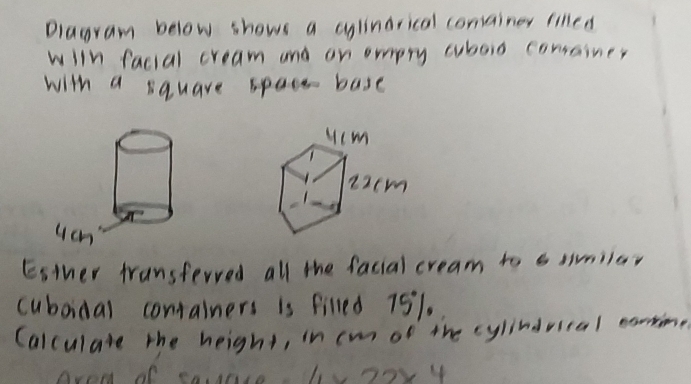 Diagram below shows a cylindrical comainer filled
with facial cream and an empty cuboid container
with a square space base
4cm
22cm
4cm
Esther transferred all the facial cream to 6 similar
cuboidal containers is filled 75%.
Calculate the height, in cm of the cylindrical
Area of square = 4 x 22 x 4